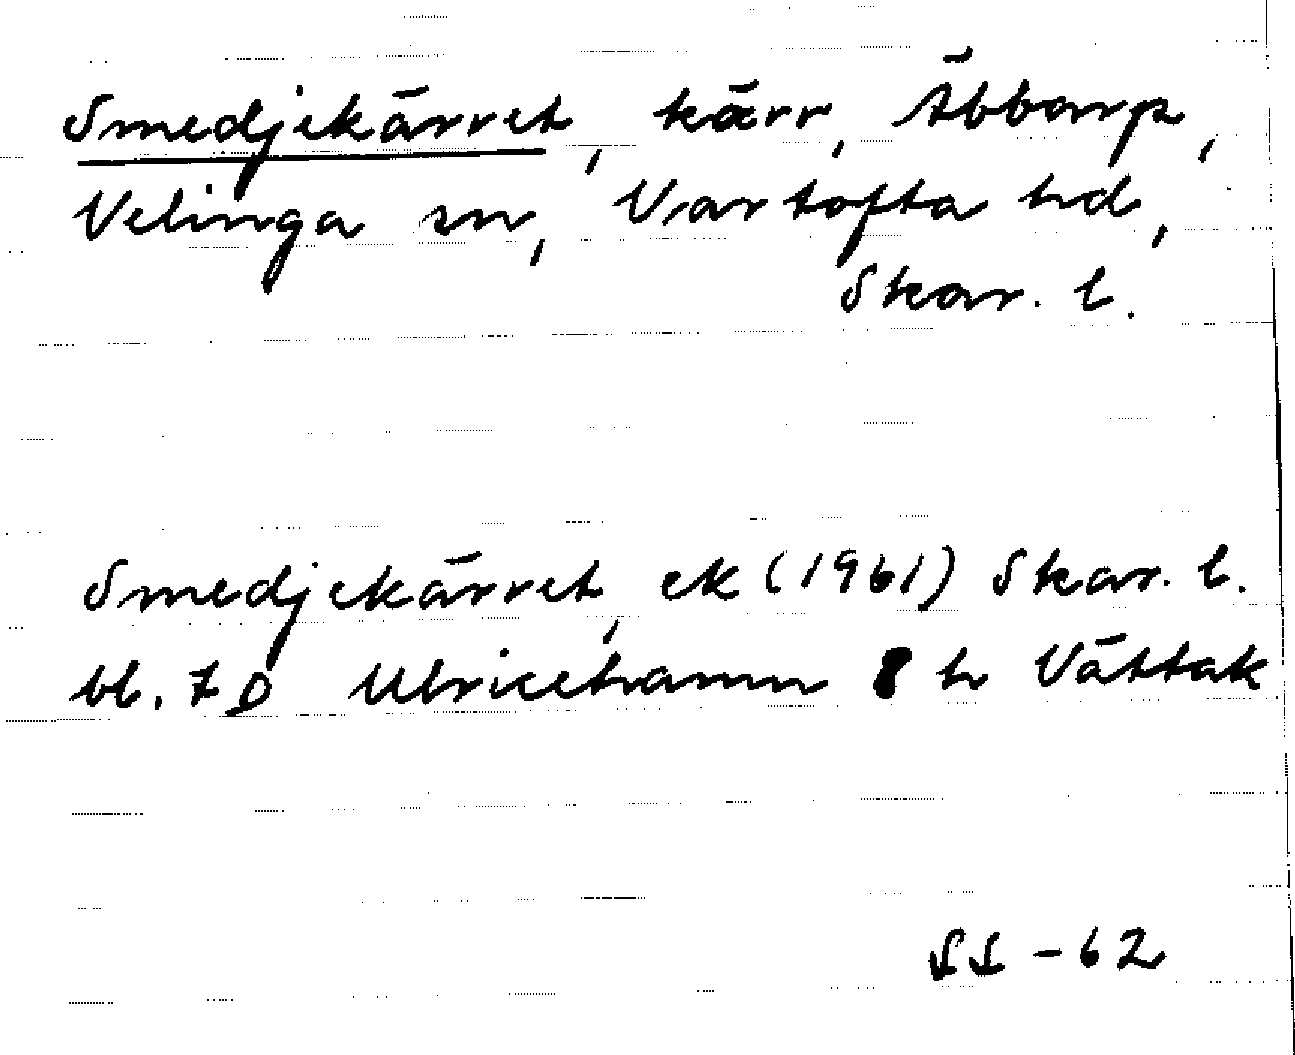 Smedjekärret, kärr, Äbbarp,
Velinga sn, Vartofta hd,
Skar. l.
Smedjekärret, ek (1961) Skar. l.
bl. 7 D Ulricehamn 8 h Vättak
SS - 62